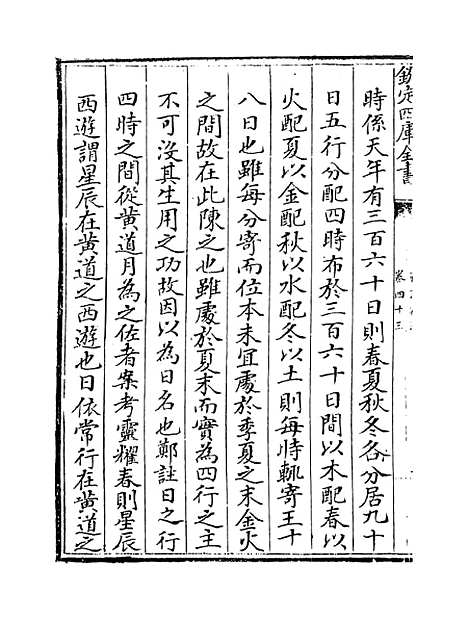 欽定四庫全書
卷四十三
時係天年有三百六十日則春夏秋冬各分居九十
日五行分配四時布於三百六十日間以木配春以
火配夏以金配秋以水配冬以土則每時輒寄王十
八日也雖每分寄而位本未宜處於季夏之末金火
之間故在此陳之也雖處於夏末而實為四行之主
不可沒其生用之功故因以為日名也鄭註日之行
四時之間從黄道月為之佐者案考靈耀春則星辰
西遊謂星辰在黄道之西遊也日依常行在黄道之